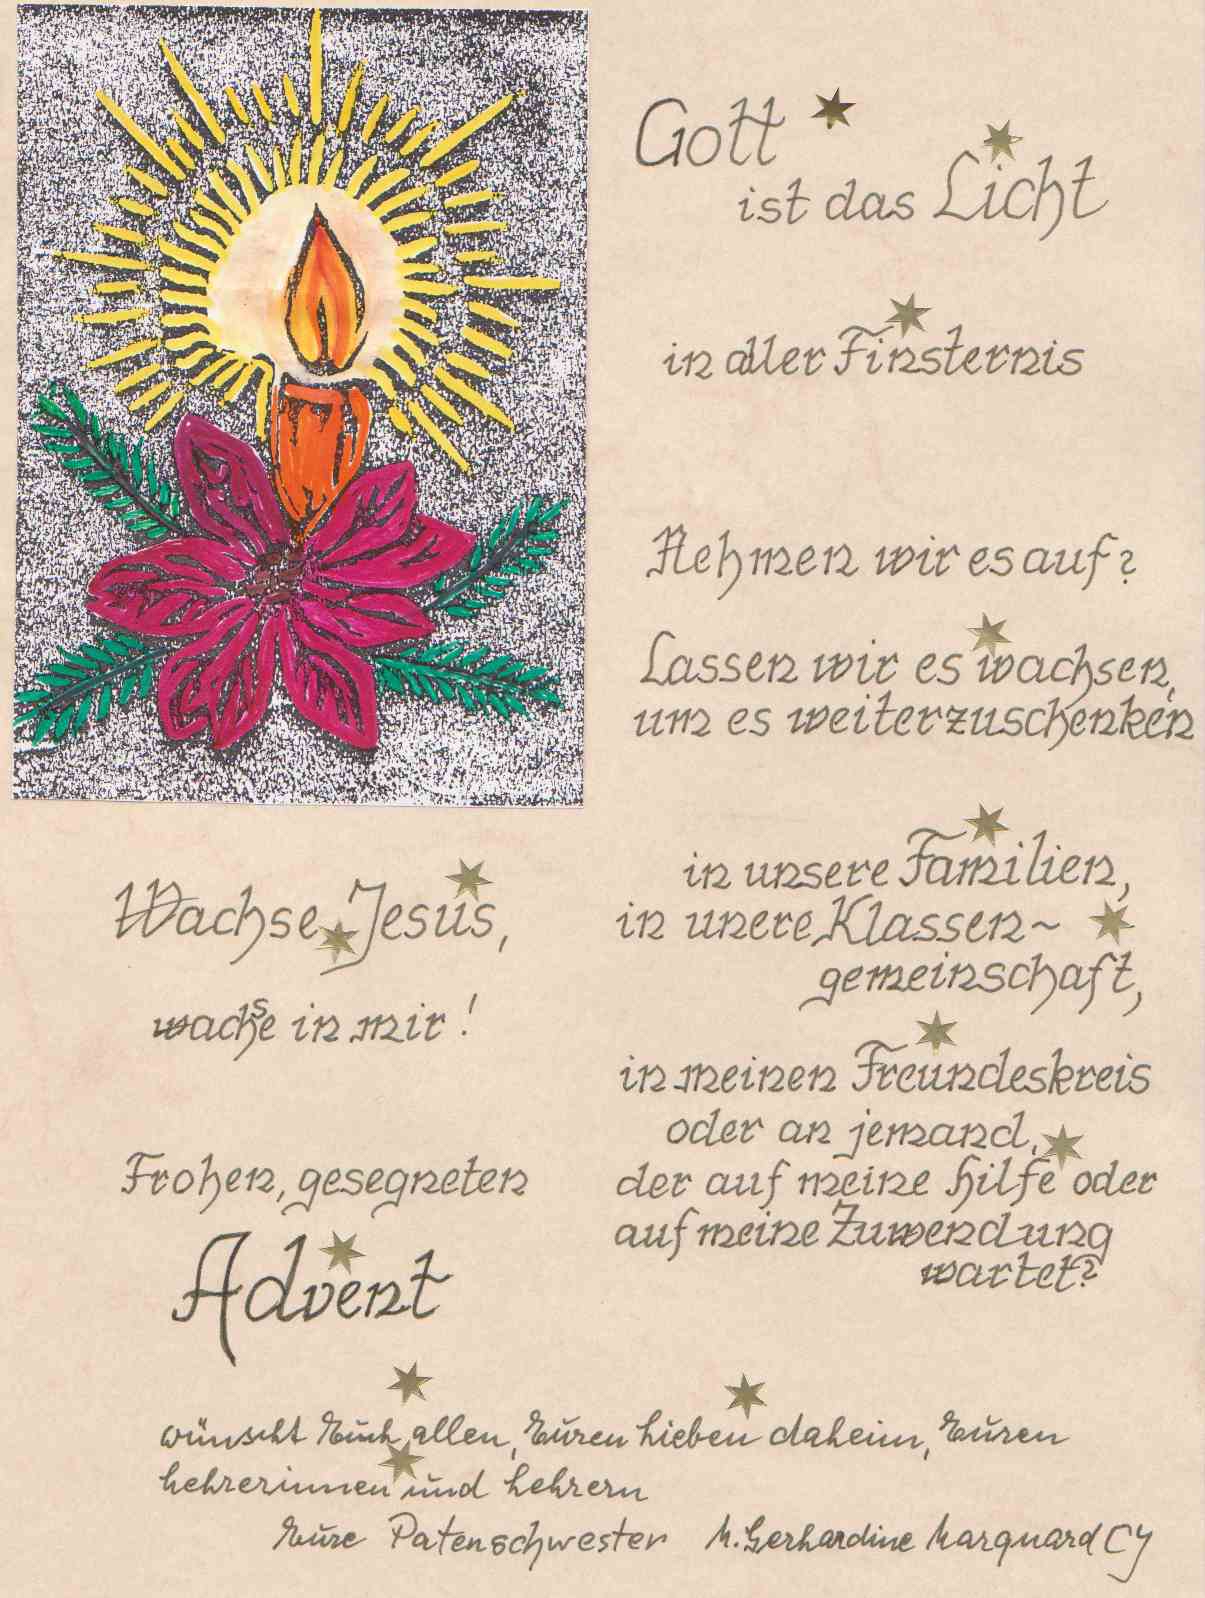 Gott
ist das Licht
in aller Finsternis
Nehmen wir es auf?
Lassen wir es wachsen,
um es weiterzuschenken
in unsere Familien,
in unere Klassen~
gemeinschaft,
in meinen Freundeskreis
oder an jemand,
der auf meine Hilfe oder
auf meine Zuwendung
wartet?
Wachse Jesus,
wachse in mir!
Frohen, gesegneten
Advent
wünscht Euch allen, Euren Lieben daheim, Euren
Lehrerinnen und Lehrern
Eure Patenschwester M. Gerhardine Marquard CJ